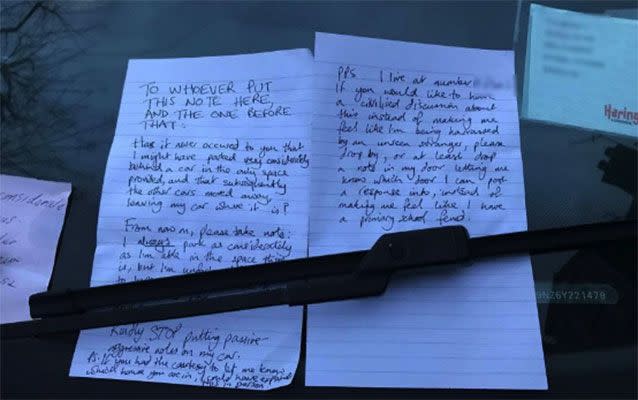 TO WHOEVER PUT
THIS NOTE HERE,
AND THE ONE BEFORE
THAT:
Has it never occured to you that
I might have parked very considerately
behind a car in the only space
provided, and that subsequently
the other cars moved away,
leaving my car where it is?
From now on, please take note:
I always park as considerately
as I'm able in the space there
is, but I'm
to
Kindly STOP putting passive-
aggressive notes on my car.
Ps. If you had the courtesy to let me know
which house you are in, I could have explained
this in person
PPS. I live at number
If you would like to have
a civilised discussion about
this instead of making me
feel like I'm being harassed
by an unseen stranger, please
drop by, or at least drop
a note in my door letting me
know which door I can post
a response into, instead of
making me feel like I have
a primary school feud.
Haring
9NZ6Y221479